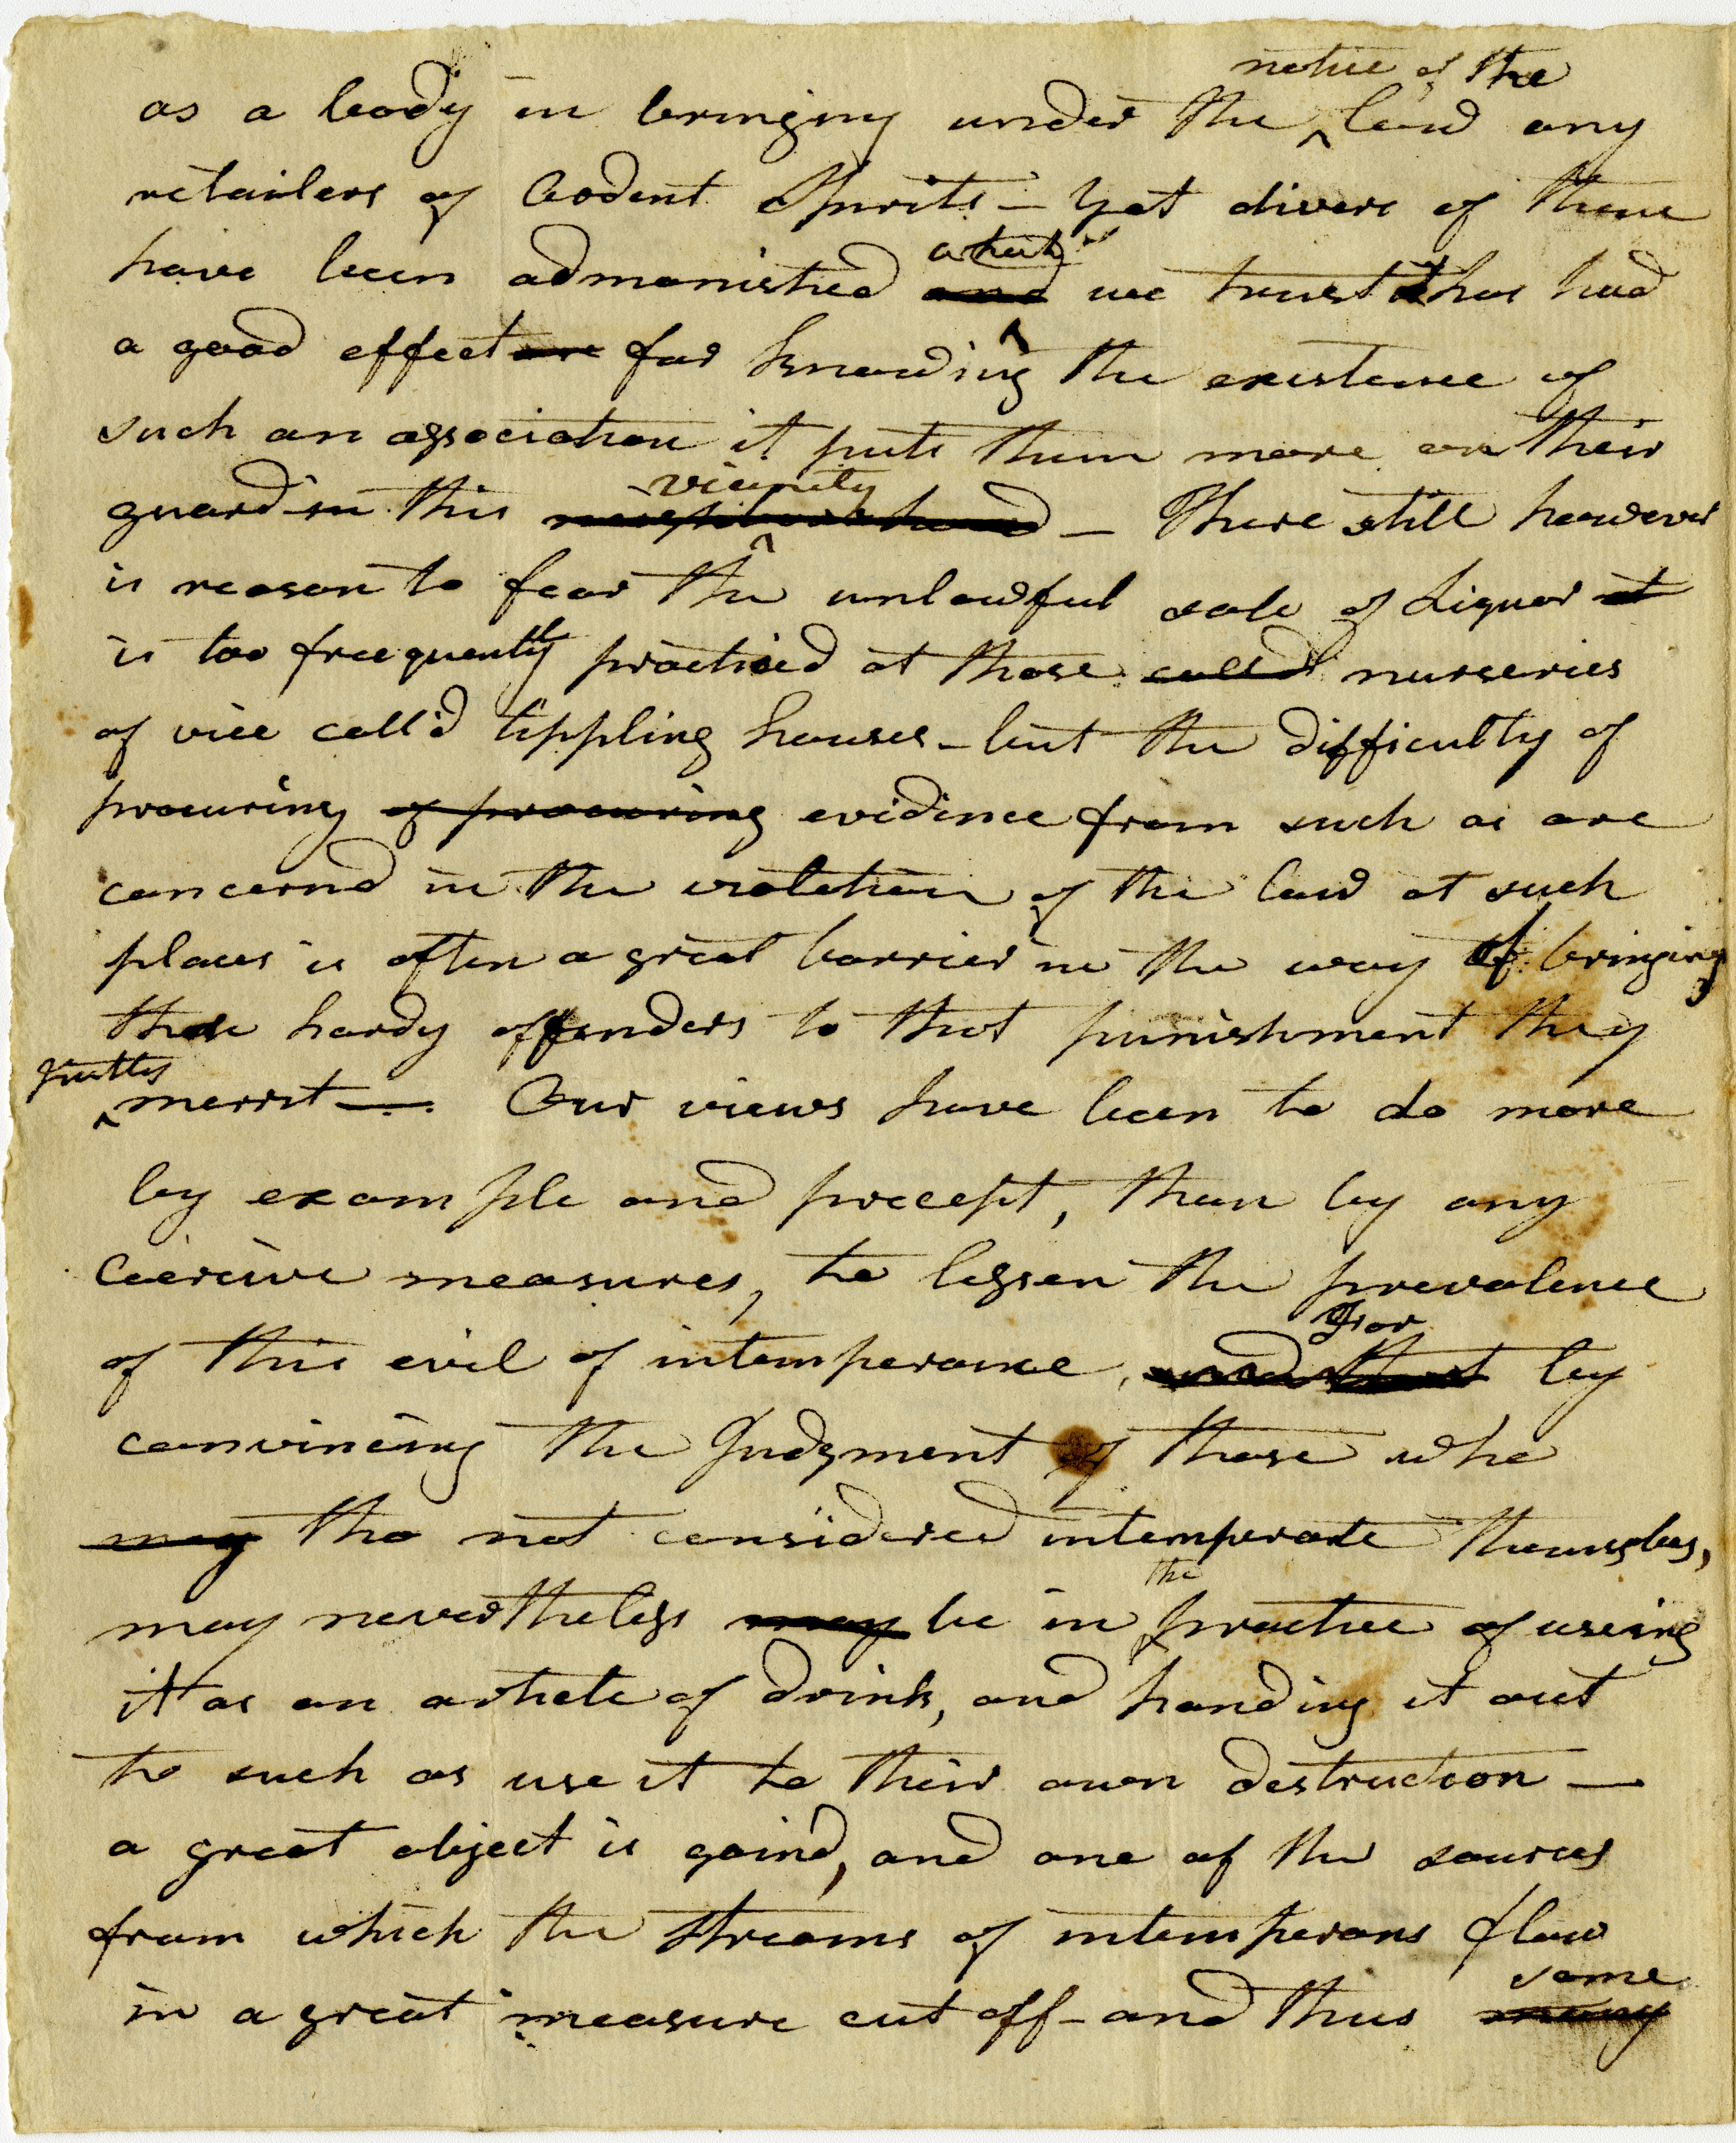 notice of the
as a body in bringing under the law any
retailers of Ardent Spirits — Yet divers of them
which
have been admonished and we trust has had
a good effect are for knowing the existence of
such an association it puts them more on their
vicinity
guard in this neighbourhood — There still however
is reason to fear the unlawful sale of Liquor it
is too freequently practised at those called nurseries
of vice call'd tippling houses — but the difficulty of
procuring of procuring evidence from such as are
concernd in the violation of the law at such
places is often a great barrier in the way of bringing
these hardy offenders to that punishment they
justly
merrit — Our views have been to do more
by example and precept, than by any
Coercive measures, to lessen the prevalence
For
of this evil of intemperance, and that by
convincing the Judgment of those who
may tho not considered intemperate themselves,
the
may nevertheless may be in practice of useing
it as an article of drink, and handing it out
to such as use it to their own destruction —
a great object is gaind, and one of the sources
from which the streams of intemperans flow
some
in a great measure cut off - and thus many